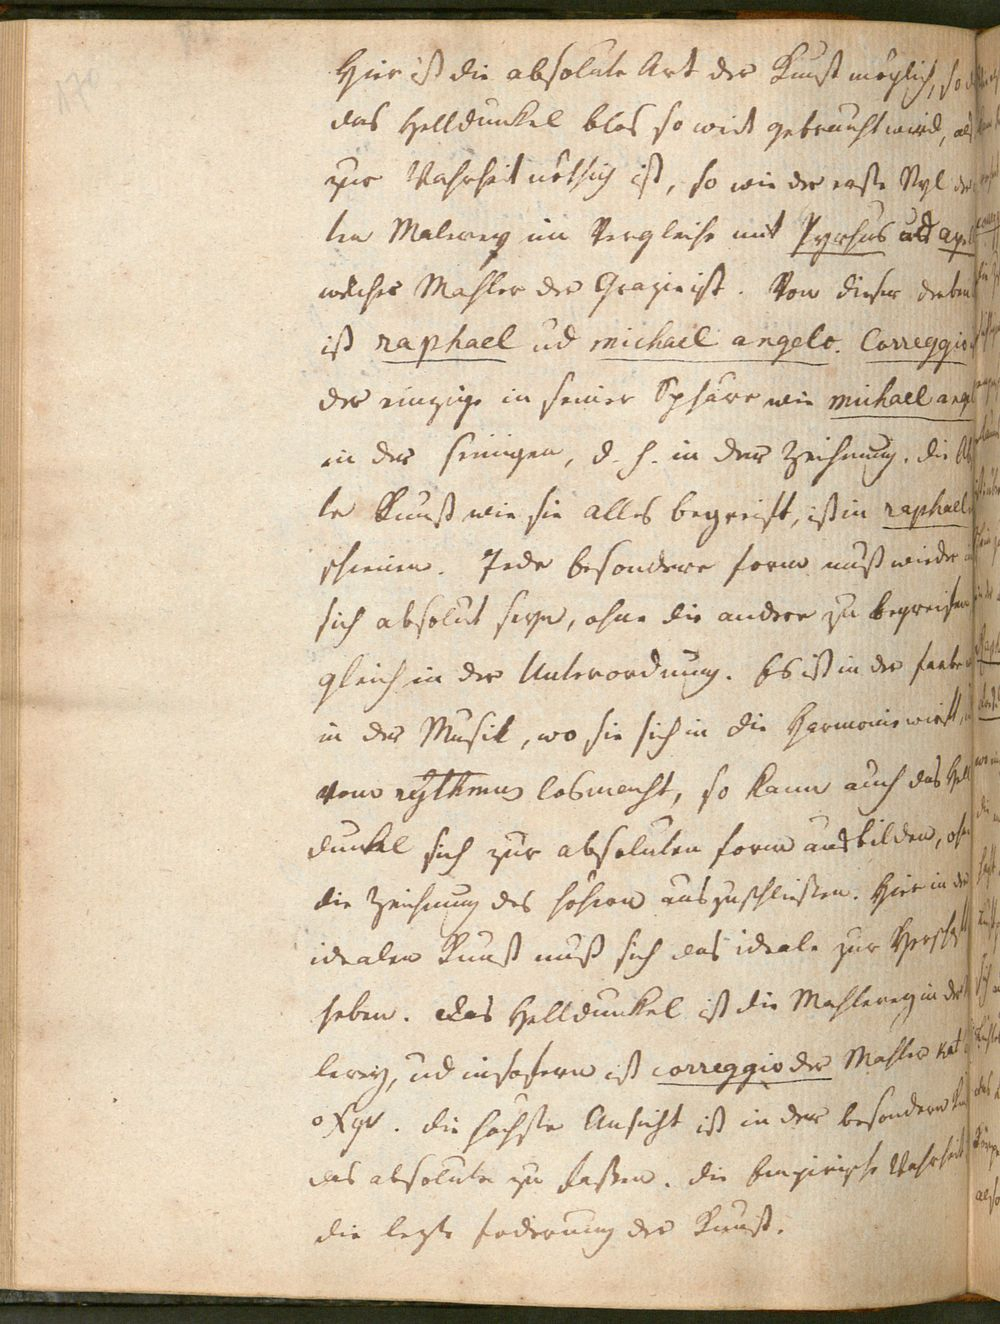 170
Hier ist die absolute Art der Kunst möglich, so d
das Helldunkel blos so weit gebraucht wird, als
zur Wahrheit nöthig ist, so wie der erste Styl der
ten Malerey im Vergleiche mit Pyrhus und Apel
welcher Mahler der Grazie ist. Von dieser
ist raphael ud michael angelo. Correggio
der einzige in seiner Sphäre wie michael ange
in der seinigen, d. h. in der Zeichnung. die Ab
le Kunst wie sie alles begreift, ist in raphael
schienen. Jede besondere form muß wieder
sich absolut seyn, ohne die andere zu begreifen
gleich in der Unterordnung. Es ist in der farbe
in der Musik, wo sie sich in die Harmonie wirft,
vom rythmus losmacht, so kann auch das Hell
dunkel sich zur absoluten form ausbilden, ohn
die Zeichnung des höhern auszuschließen. Hier in der
idealen Kunst muß sich das ideale zur Herrsch
heben. Das Helldunkel ist die Mahlerey in der
lerey, ud insofern ist correggio der Mahler κατ
οχην. die höchste Ansicht ist in der besondern
das absolute zu fassen. die Empirische Wahrheit
die lezte foderung der Kunst.